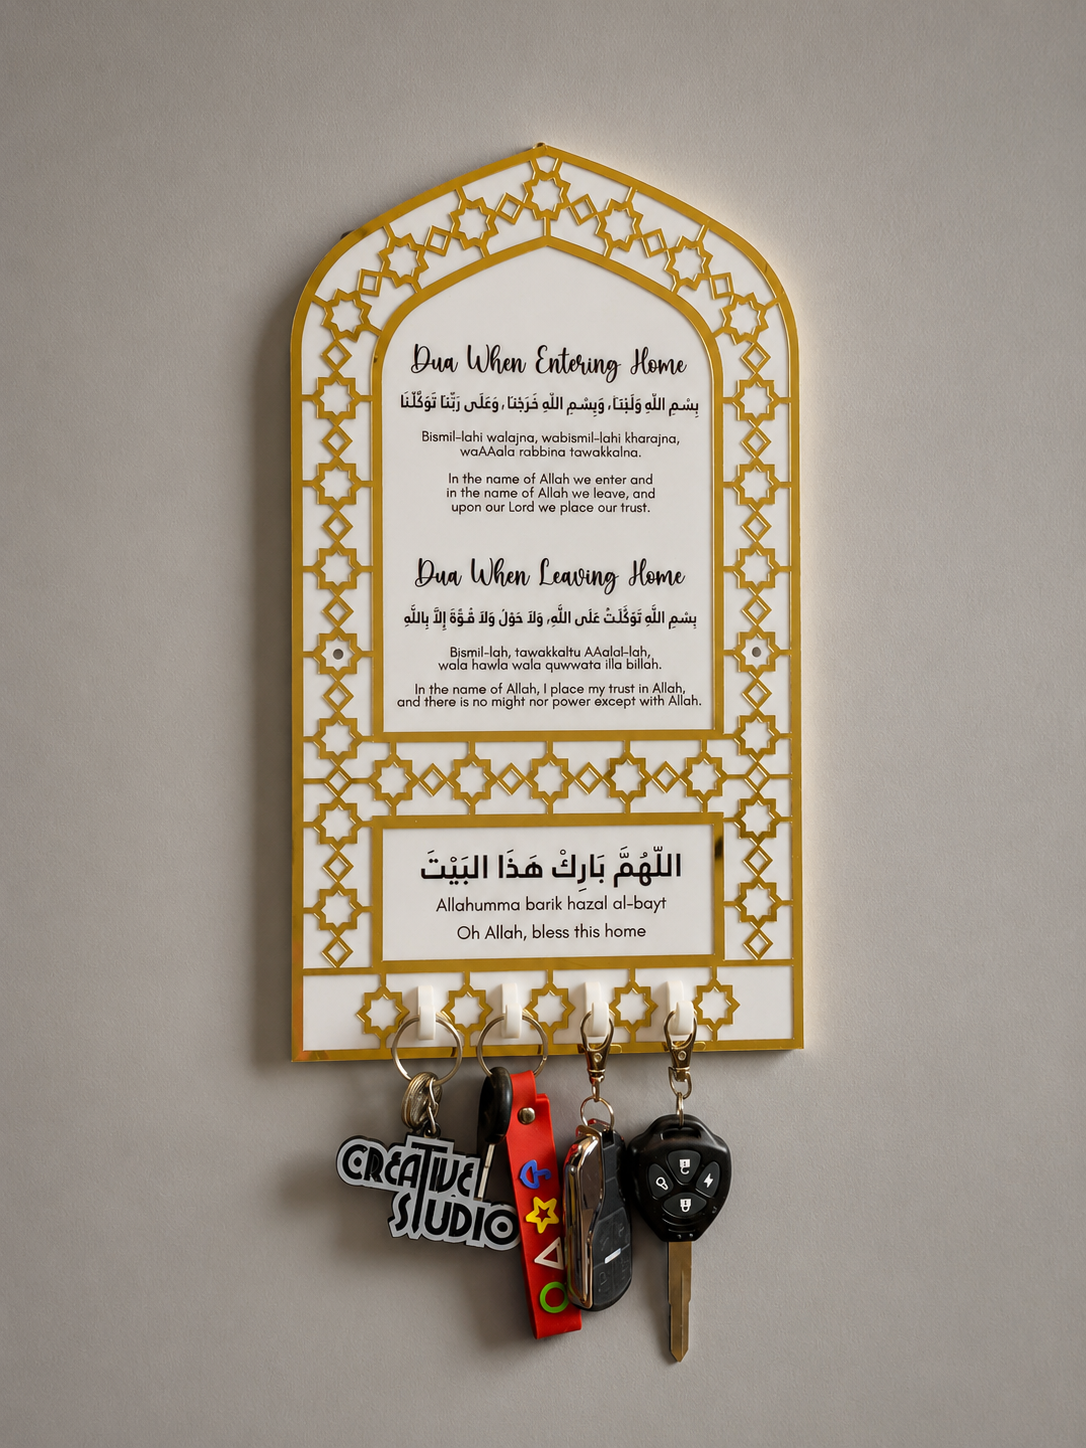 Dua When Entering Home
بِسْمِ اللّٰهِ وَلَجْنَا، وَبِسْمِ اللّٰهِ خَرَجْنَا، وَعَلَى رَبِّنَا تَوَكَّلْنَا
Bismil-lahi walajna, wabismil-lahi kharajna,
waAAala rabbina tawakkalna.
In the name of Allah we enter and
in the name of Allah we leave, and
upon our Lord we place our trust.
Dua When Leaving Home
بِسْمِ اللَّهِ تَوَكَّلْتُ عَلَى اللَّهِ، وَلاَ حَوْلَ وَلاَ قُوَّةَ إِلاَّ بِاللَّهِ
Bismil-lah, tawakkaltu AAalal-lah,
wala hawla wala quwwata illa billah.
In the name of Allah, I place my trust in Allah,
and there is no might nor power except with Allah.
اللّهُمَّ بَارِكْ هَذَا البَيْتَ
Allahumma barik hazal al-bayt
Oh Allah, bless this home
CREATIVE
STUDIO